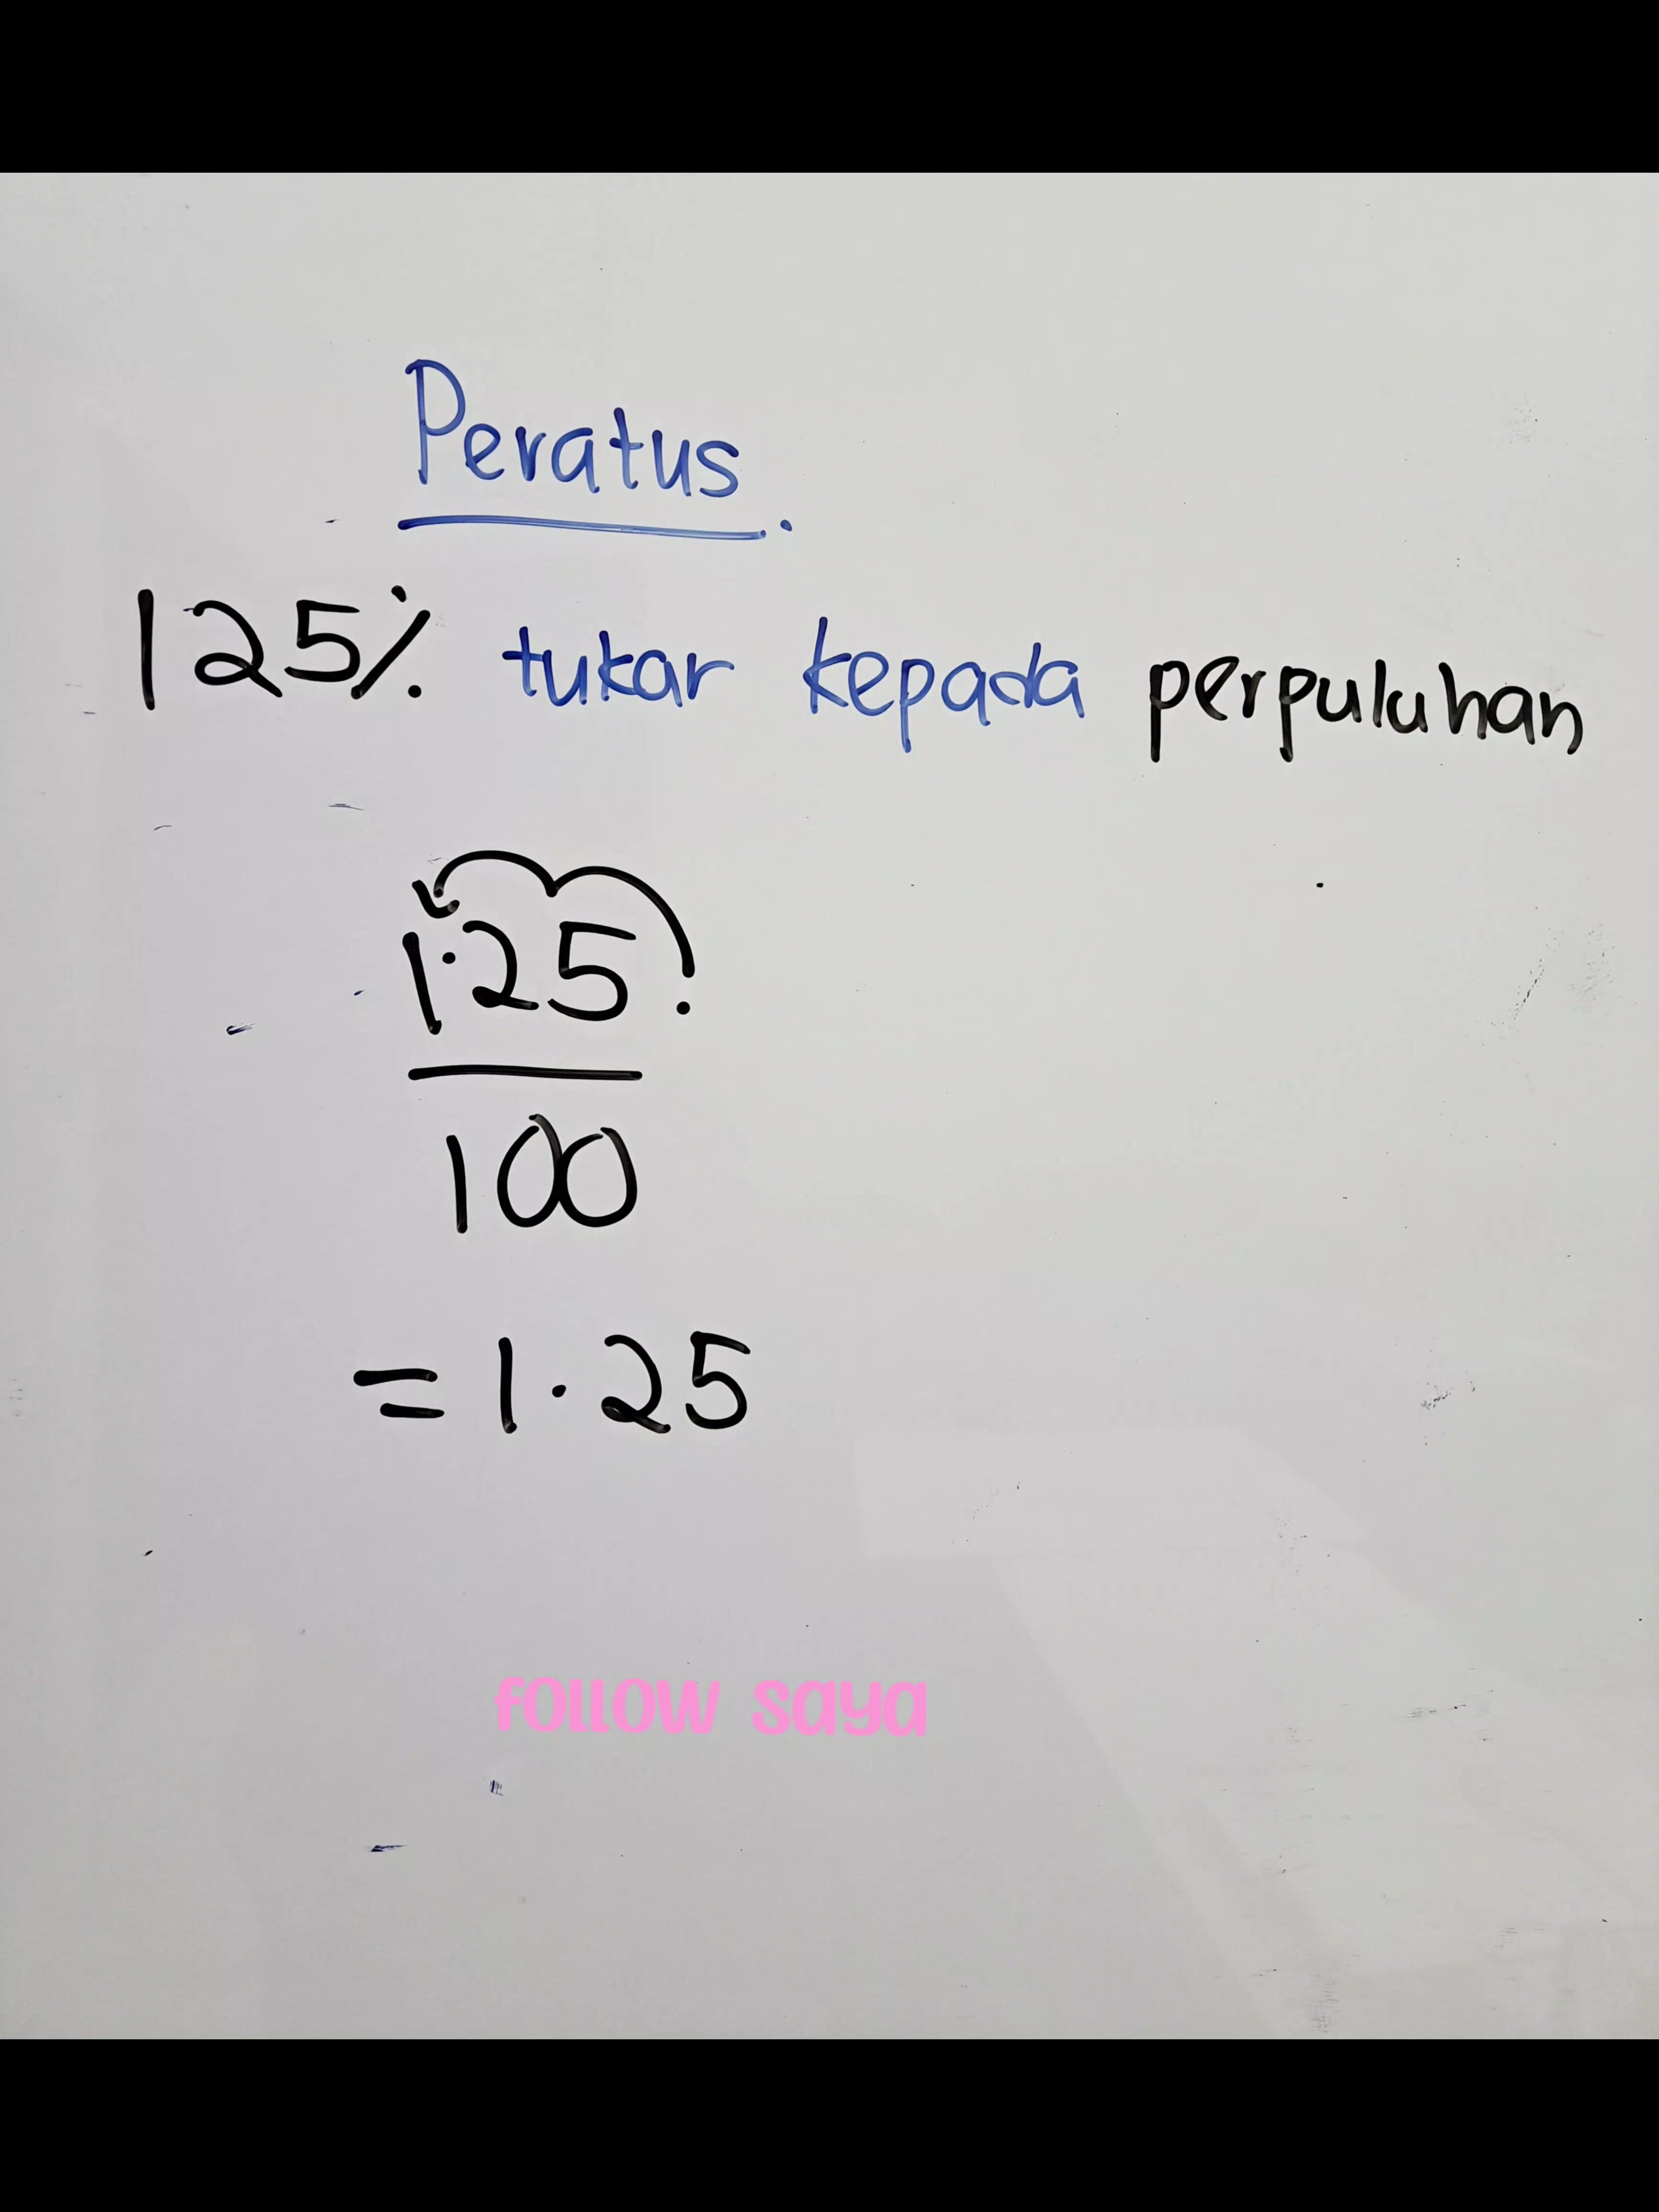 Peratus.
125% tukar kepada perpuluhan
1.25.
100
= 1.25
follow saya